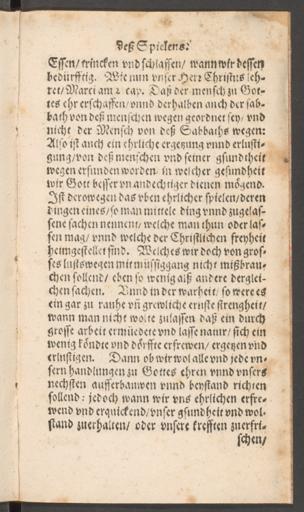 deß Spielens.
Essen/ trincken vnd schlaffen/ wann wir dessen
bedürfftig. Wie nun vnser Herr Christus leh-
ret/ Marci am 2. cap. Daß der mensch zu Got-
tes ehr erschaffen/ vnnd derhalben auch der sab-
bath von deß menschen wegen geordnet sey/ vnd
nicht der Mensch von deß Sabbaths wegen:
Also ist auch ein ehrliche ergetzung vnnd erlusti-
gung/ von deß menschen vnd seiner gsundtheit
wegen erfunden worden in welcher gesundheit
wir Gott besser vñ andechtiger dienen mögend.
Ist derowegen das vben ehrlicher spielen/ deren
dingen eines/ so man mittele ding vnnd zugelas-
sene sachen nennent/ welche man thun oder las-
sen mag/ vnnd welche der Christlichen freyheit
heimgestellet sind. Welches wir doch von gros-
ses lusts wegen mit müssiggang nicht mißbrau-
chen sollend/ eben so wenig alß andere derglei-
chen sachen. Vnnd in der warheit/ so were es
ein gar zu rauhe vñ grewliche ernste strengheit/
wann man nicht wolte zulassen daß ein durch
grosse arbeit ermüedete vnd lasse natur/ sich ein
wenig köndte vnd dörffte erfrewen/ ergetzen vnd
erlustigen. Dann ob wir wol alle vnd jede vn-
sern handlungen zu Gottes ehren vnnd vnsers
nechsten aufferbauwen vnnd beystand richten
sollend: jedoch wann wir vns ehrlichen erfre-
wend vnd erquickend/ vnser gsundheit vnd wol-
stand zuerhalten/ oder vnsere krefften zuerfri-
schen/